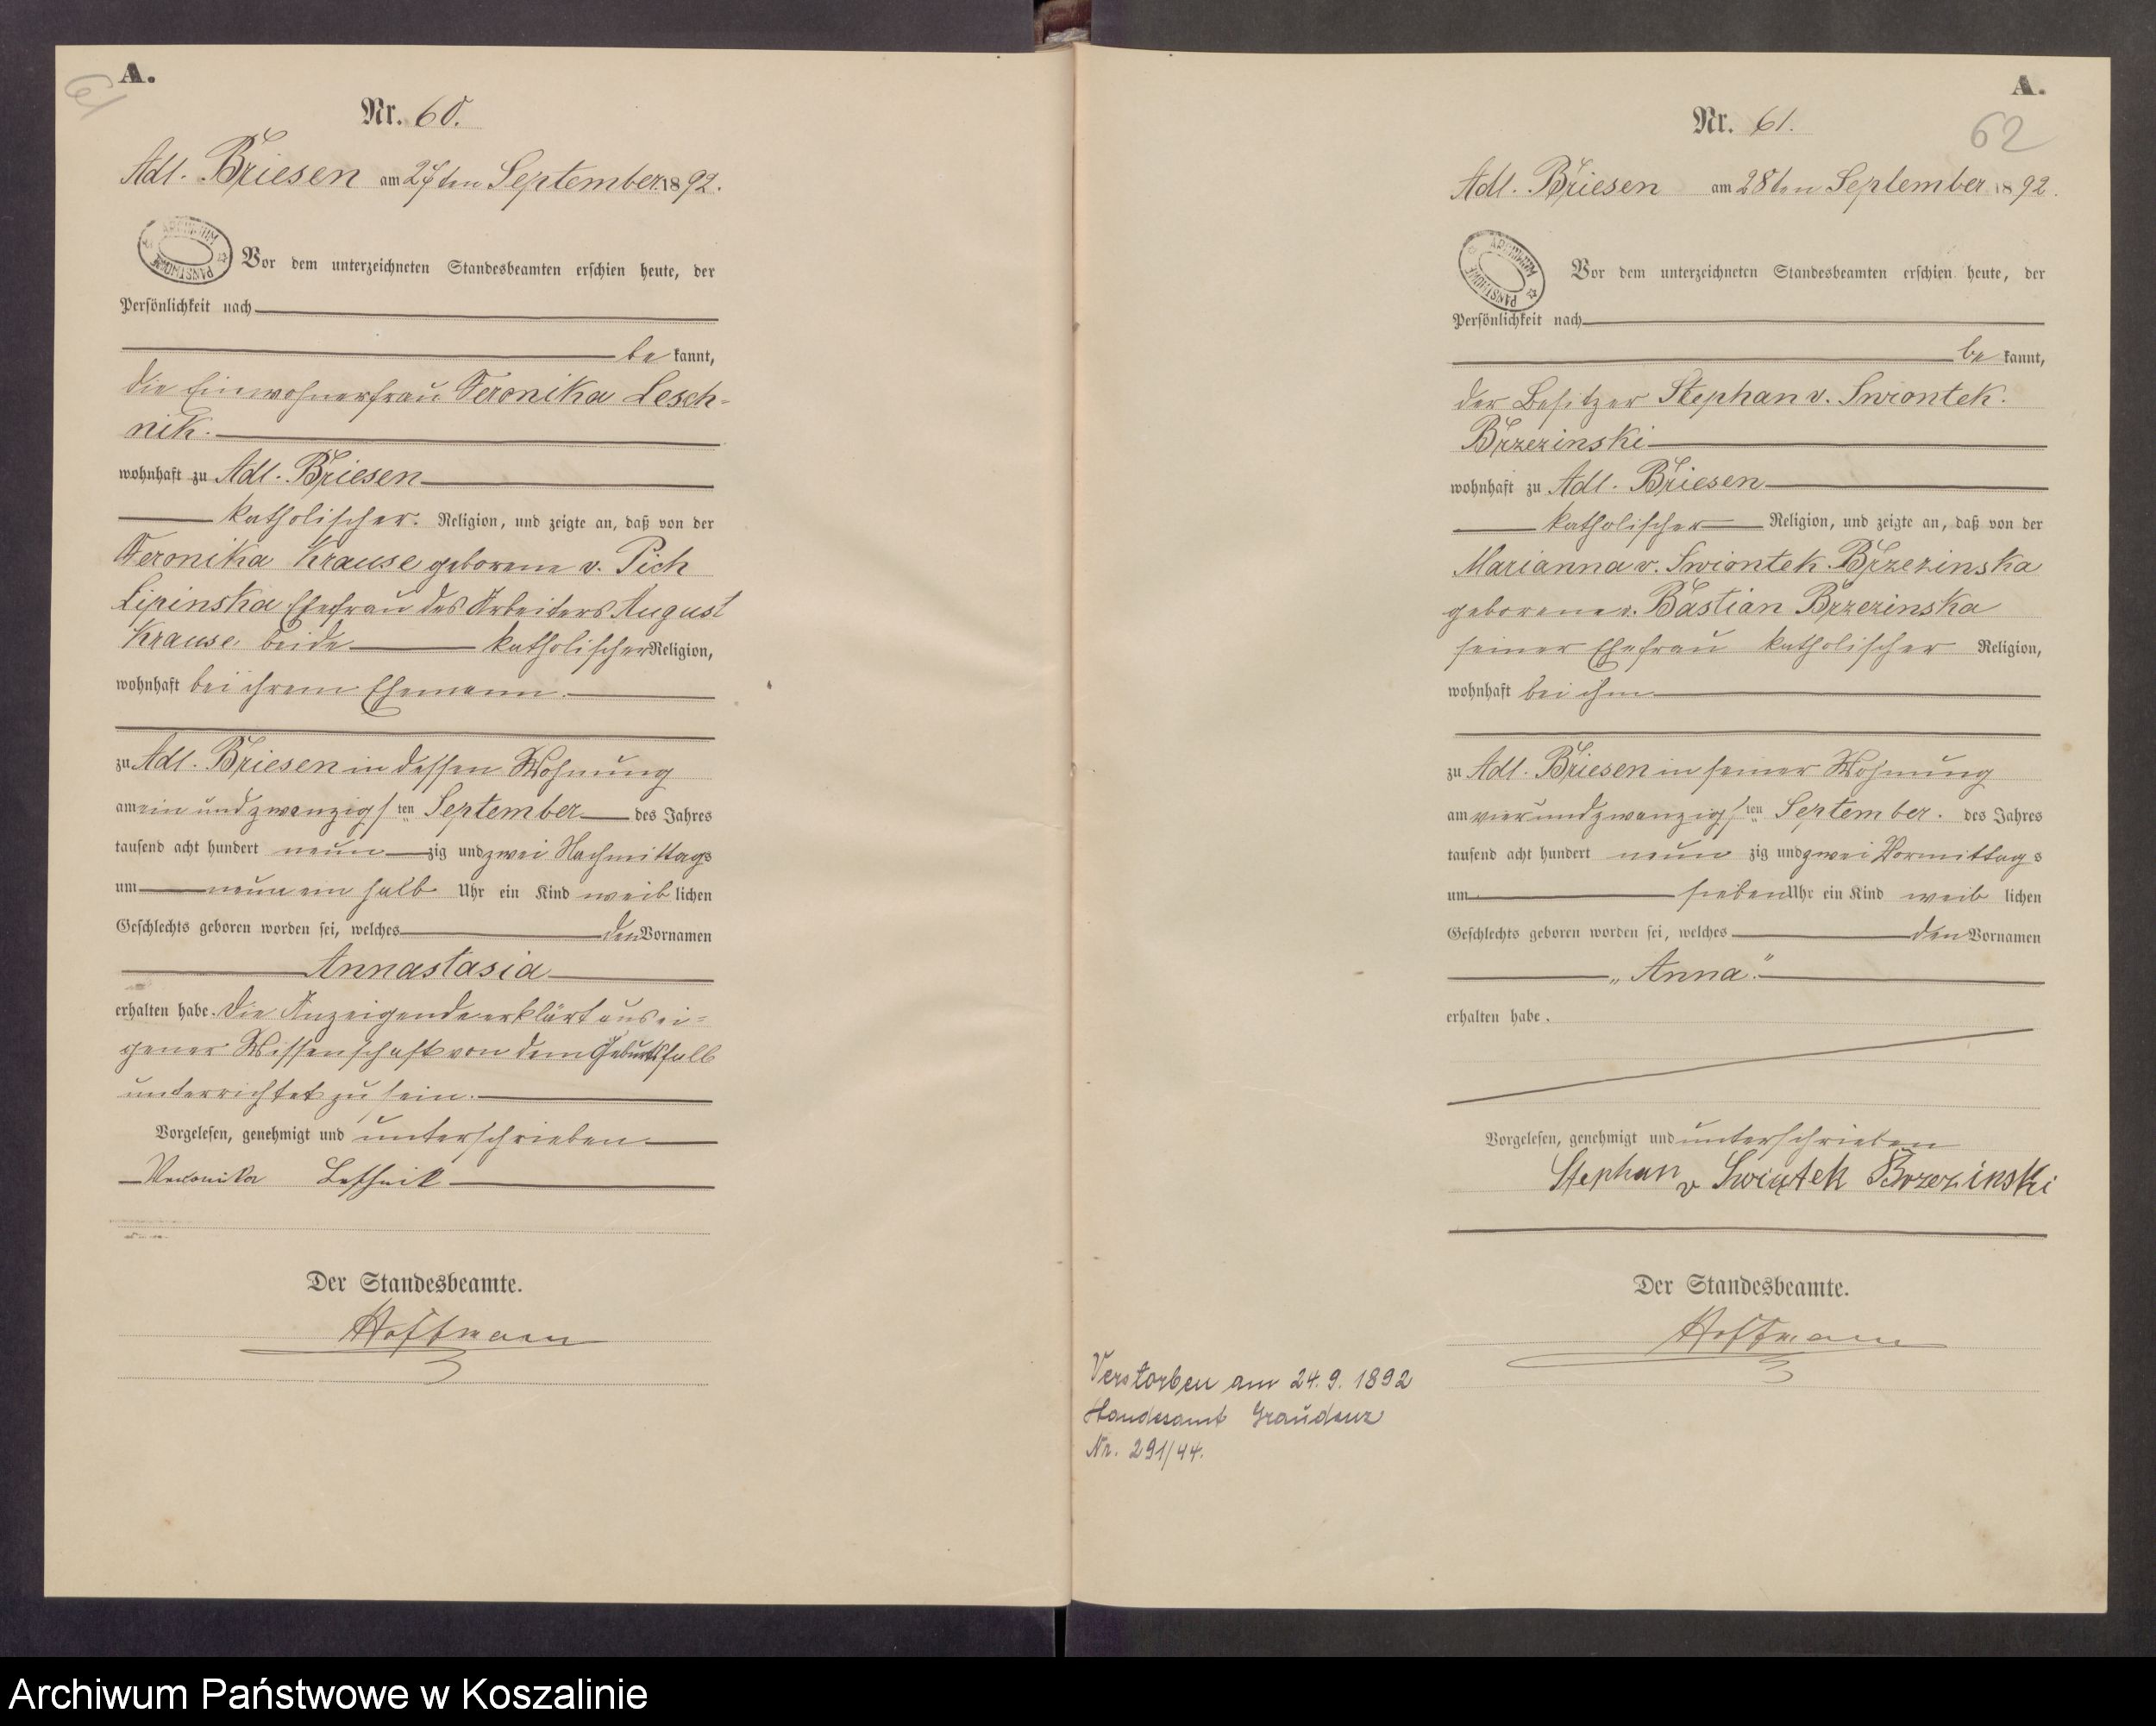 A.
61
Nr. 60.
Adl. Briesen am 27ten September 1892.
ARCHIWUM PAŃSTWOWE
Vor dem unterzeichneten Standesbeamten erschien heute, der
Persönlichkeit nach
be kannt,
die Einwohnerfrau Veronika Lesch-
nik.
wohnhaft zu Adl. Briesen
katholischer. Religion, und zeigte an, daß von der
Veronika Krause geborene v. Pich
Lipinska Ehefrau des Arbeiters August
Krause, beide katholischer Religion,
wohnhaft bei ihrem Ehemann.
zu Adl. Briesen in dessen Wohnung
am ein und zwanzigsten September des Jahres
tausend acht hundert neun zig und zwei Nachmittags
um neun ein halb Uhr ein Kind weib lichen
Geschlechts geboren worden sei, welches den Vornamen
Annastasia
erhalten habe. Die Anzeigende erklärt aus ei-
gener Wissenschaft von dem Geburtsfall
unterrichtet zu sein.
Vorgelesen, genehmigt und unterschrieben
Veronika Leschnik
Der Standesbeamte.
Hoffmann
A.
62
Nr. 61.
Adl. Briesen am 28ten September 1892.
ARCHIWUM PAŃSTWOWE
Vor dem unterzeichneten Standesbeamten erschien heute, der
Persönlichkeit nach
be kannt,
der Besitzer Stephan v. Swiontek.
Brzezinski
wohnhaft zu Adl. Briesen
katholischer Religion, und zeigte an, daß von der
Marianna v. Swiontek Brzezinska
geborene v. Bastian Brzezinska
seiner Ehefrau katholischer Religion,
wohnhaft bei ihm
zu Adl. Briesen in seiner Wohnung
am vier und zwanzigsten September. des Jahres
tausend acht hundert neun zig und zwei Vormittags
um sieben Uhr ein Kind weib lichen
Geschlechts geboren worden sei, welches den Vornamen
„Anna."
erhalten habe.
Vorgelesen, genehmigt und unterschrieben
Stephan v Swiątek Brzezinski
Der Standesbeamte.
Hoffmann
Verstorben am 24.9.1892
Standesamt Graudenz
Nr. 291/44.
Archiwum Państwowe w Koszalinie